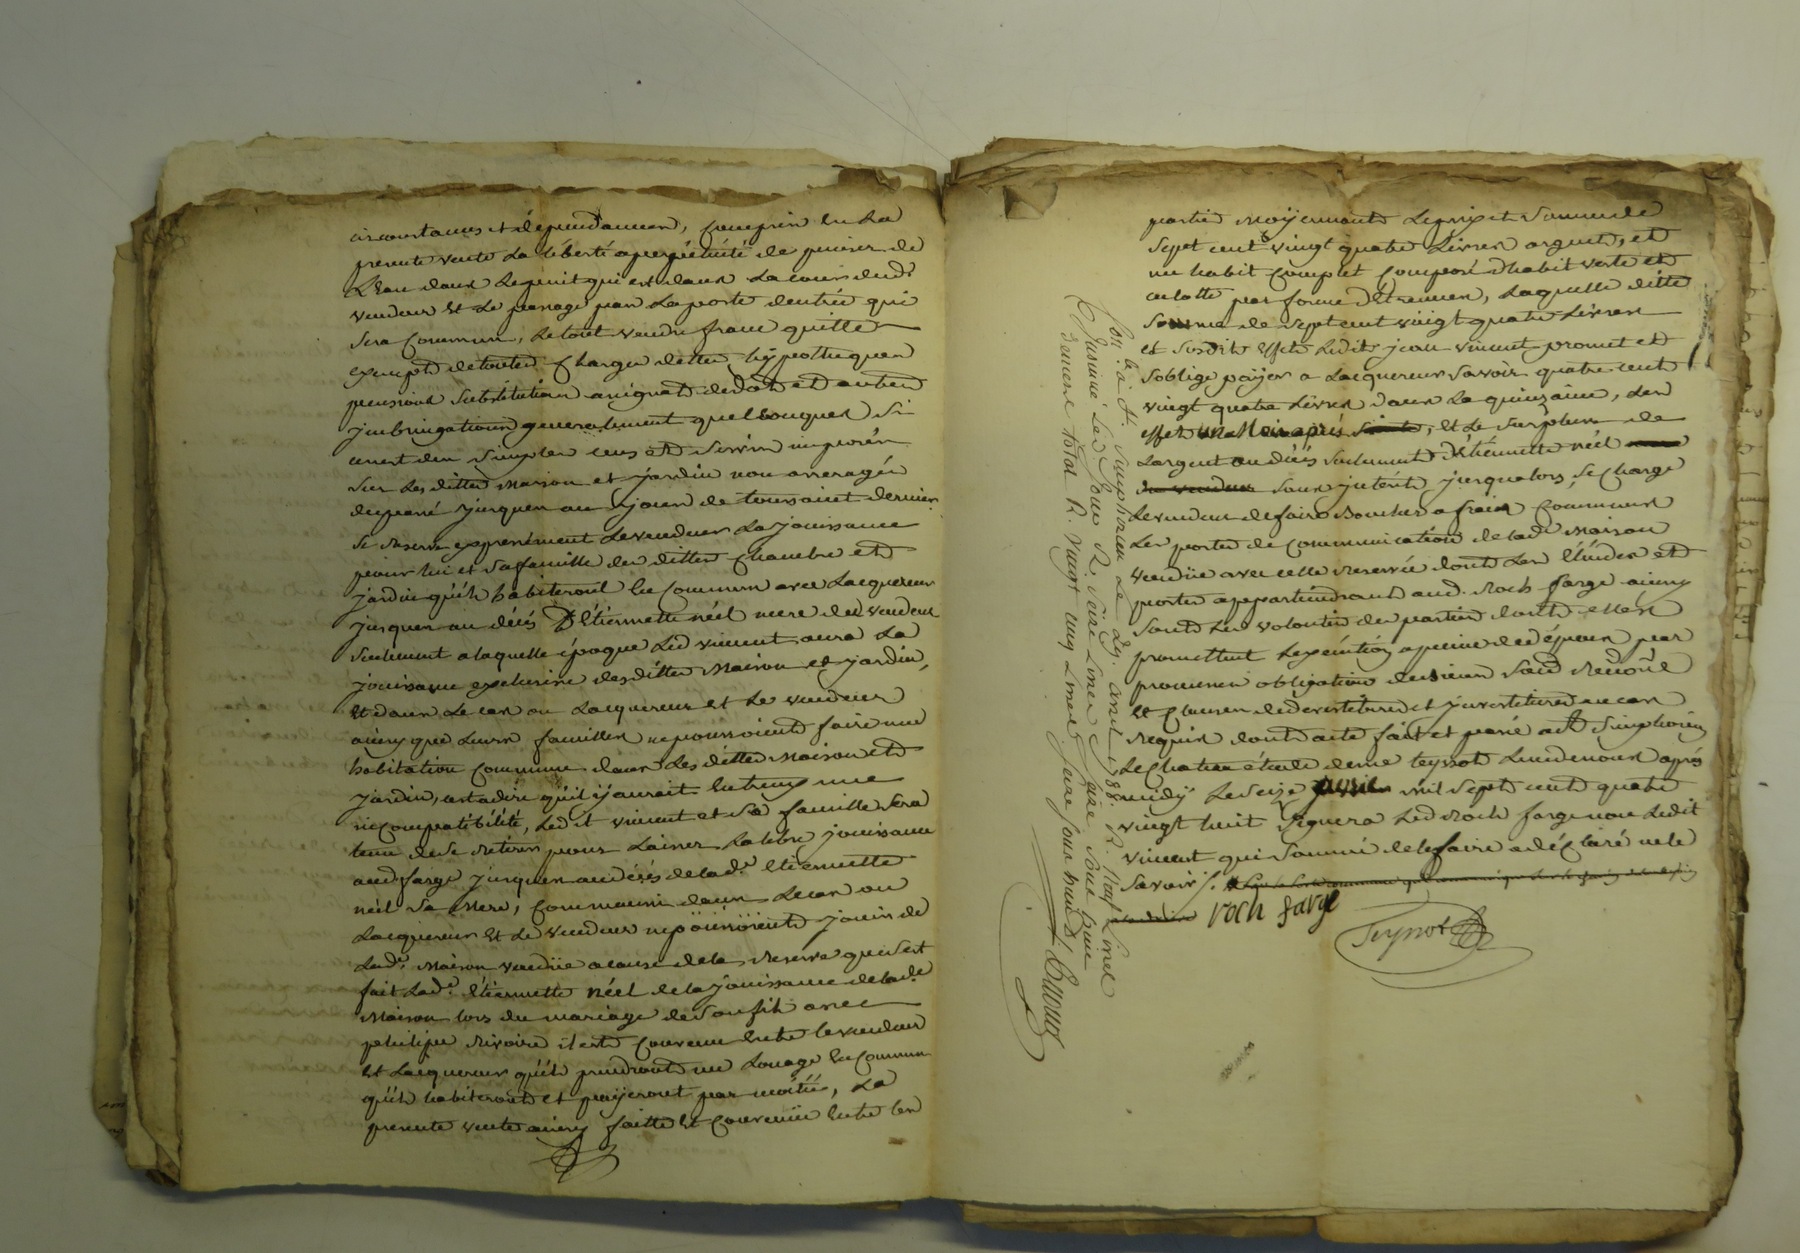 circonstances et dépendances, compris en La
presente vente La liberté aperpétuité de puiser de
L'Eau dans Lepuit qui est dans La cour dud.
vendeur et Le passage par Laporte dentrée qui
sera Commun, Letout vendu franc quitte et
exempt detoutes Charges dettes hÿpotheques
pensions substitution assignat dedot et autres
generalement quelconques si
cenest des simples cens et servis imposés
sur Lesdittes Maison et jardin non arreragés
dupassé jusques au jour de toussaint dernier
se reserve expressément Levendeur La jouissance
pour lui et sa famille des dittes Chambre et
jardin qu'ils habiteront En Commun avec Lacquereur
jusques au décés D'Etiennette néel mere dud vendeur
seulement a laquelle époque Led vincent aura La
jouissance exclusive desdittes Maison et jardin,
Et dans Le cas ou Lacquereur et Le vendeur
ainsy que Leurs familles nepourroient faire une
habitation commune dans Les dittes Maison et
jardin, cest adire qu'il ÿ auroit Entreux une
incompatibilité, Led.t vincent et sa famille sera
tenu de se retirer pour Laisser La libre jouissance
aud farge jusques au décés de lad. Etiennette
néel sa Mere, Comme aussi dans Le cas ou
Lacquereur et Le vendeur nepourroient jouir de
Lad. Maison vendüe acause dela reserve que s'est
fait Lad.e Etiennette néel de la jouissance de lad.e
Maison lors du mariage de son fils avec
philipe rivoire il est Convenu Entre levendeur
et Lacquereur qu'ils prendront un Louage En Commun
qu'ils habiteront et payeront par moitié, La
presente vente ainsy faitte et Convenüe Entre les
parties Moÿennant Leprix et Somme de
Sept cent vingt quatre Livres argent, et
un habit Complet Composé d'habit veste et
culotte par forme D'Etrennes, Laquelle ditte
Somme de Sept cent vingt quatre Livres
et susdits Effets Ledit jean vincent promet et
s'oblige paÿer a Lacquereur Savoir quatre cent
vingt quatre Livres dans La quinzaine, Les
effets un Mois après, et Le surplus de
Largent au décés seulement d'étiennette néel
sans jnterêts jusqualors, se Charge
Levendeur defaire Boucher a frais Communs
Les portes de Communication de lad Maison
vendüe avec celle reservée dont Les Etudes et
portes appartiendront aud. roch farge ainsy
sont Les volontés des parties dont elles
promettent Lexecution apeine de dépens par
promesses obligations des biens soum renon.e
et Clauses de devestitures et jnvestitures au cas
requis dont acte fait et passé a St Simphorien
Le Chateau étude de me teyssot Lundenous aprés
midÿ Le seize avril mil sept cent quatre
vingt huit Signera Led roch farge non Ledit
vincent qui sommé de le faire a déClaré ne le
savoir /.
roch farge
Teyssot
Con.lé a St. simphorien Le 29. avril 1788. R. Neuf Livres
Jnsinué Led. Jour R. Seize Livres Seize Sous Huit
deniers total R. vingt cinq Livres seize sous huit d.